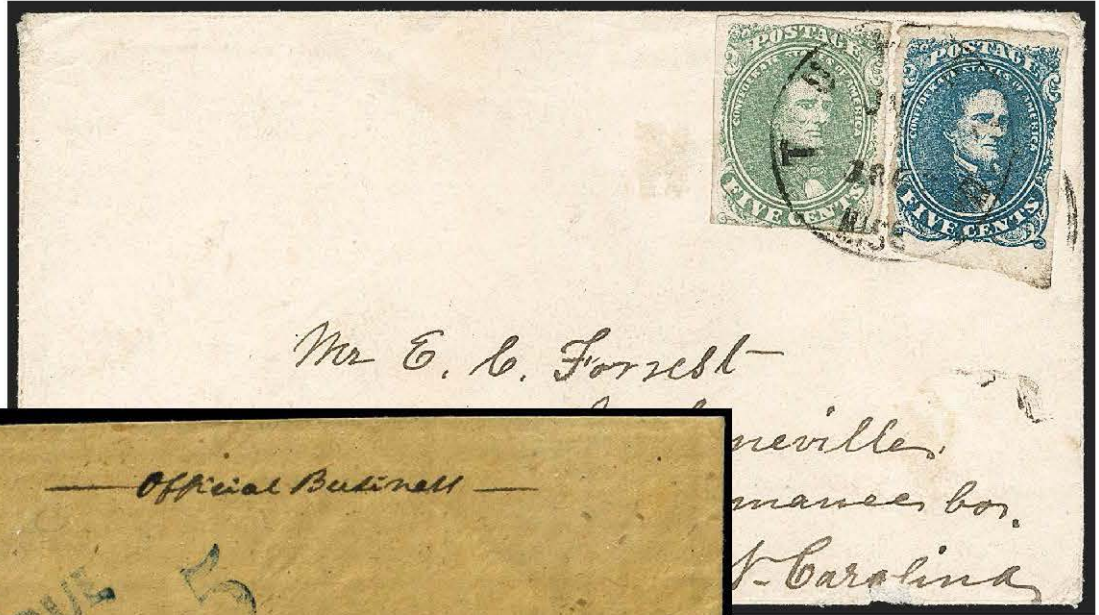 POSTAGE
CONFEDERATE STATES OF AMERICA
FIVE CENTS
POSTAGE
CONFEDERATE STATES OF AMERICA
FIVE CENTS
MISS
Mr E. C. Forrest
neville
mance Co.
N. Carolina
Official Business
DUE 5